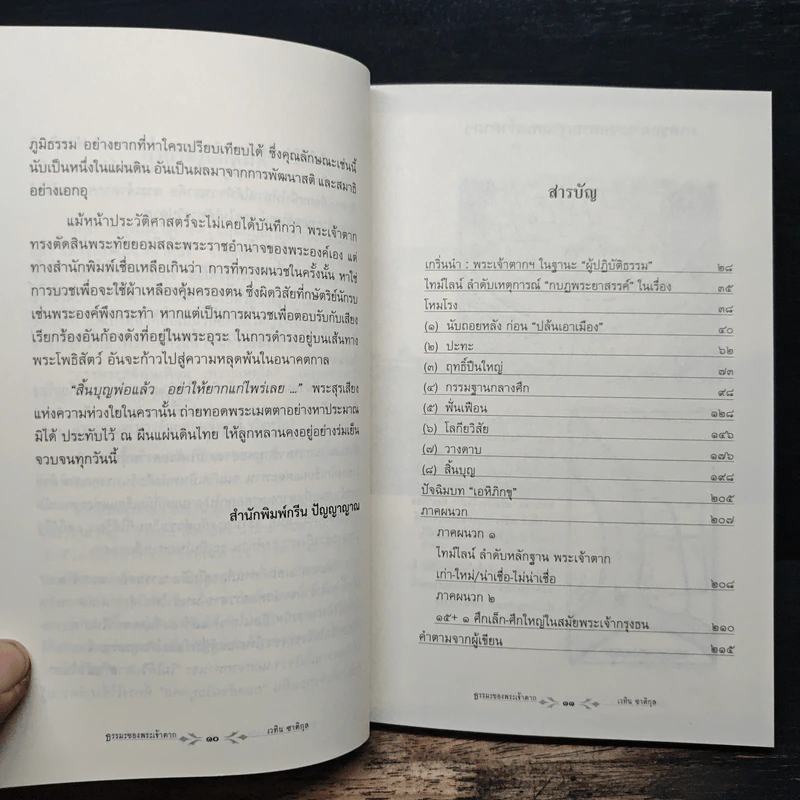 ภูมิธรรม อย่างยากที่หาใครเปรียบเทียบได้ ซึ่งคุณลักษณะเช่นนี้
นับเป็นหนึ่งในแผ่นดิน อันเป็นผลมาจากการพัฒนาสติ และสมาธิ
อย่างเอกอุ
แม้หน้าประวัติศาสตร์จะไม่เคยได้บันทึกว่า พระเจ้าตาก
ทรงตัดสินพระทัยยอมสละพระราชอำนาจของพระองค์เอง แต่
ทางสำนักพิมพ์เชื่อเหลือเกินว่า การที่ทรงผนวชในครั้งนั้น หาใช่
การบวชเพื่อจะใช้ผ้าเหลืองคุ้มครองตน ซึ่งผิดวิสัยที่กษัตริย์นักรบ
เช่นพระองค์พึงกระทำ หากแต่เป็นการผนวชเพื่อตอบรับกับเสียง
เรียกร้องอันก้องดังที่อยู่ในพระอุระ ในการดำรงอยู่บนเส้นทาง
พระโพธิสัตว์ อันจะก้าวไปสู่ความหลุดพ้นในอนาคตกาล
“สิ้นบุญพ่อแล้ว อย่าให้ยากแก่ไพร่เลย ...” พระสุรเสียง
แห่งความห่วงใยในครานั้น ถ่ายทอดพระเมตตาอย่างหาประมาณ
มิได้ ประทับไว้ ณ ผืนแผ่นดินไทย ให้ลูกหลานคงอยู่อย่างร่มเย็น
จวบจนทุกวันนี้
สำนักพิมพ์กรีน ปัญญาญาณ
ธรรมะของพระเจ้าตาก ๑๐ เวทิน ชาติกุล
สารบัญ
เกริ่นนำ : พระเจ้าตากฯ ในฐานะ “ผู้ปฏิบัติธรรม” ๒๘
ไทม์ไลน์ ลำดับเหตุการณ์ “กบฏพระยาสรรค์” ในเรื่อง ๓๕
โหมโรง ๓๘
(๑) นับถอยหลัง ก่อน “ปล้นเอาเมือง” ๔๐
(๒) ปะทะ ๖๒
(๓) ฤทธิ์ปืนใหญ่ ๗๓
(๔) กรรมฐานกลางศึก ๙๘
(๕) ฟั่นเฟือน ๑๒๘
(๖) โลกียวิสัย ๑๔๖
(๗) วางดาบ ๑๗๖
(๘) สิ้นบุญ ๑๙๘
ปัจฉิมบท “เอหิภิกขุ” ๒๐๕
ภาคผนวก ๒๐๗
ภาคผนวก ๑
ไทม์ไลน์ ลำดับหลักฐาน พระเจ้าตาก
เก่า-ใหม่/น่าเชื่อ-ไม่น่าเชื่อ ๒๐๘
ภาคผนวก ๒
๑๕+ ๑ ศึกเล็ก-ศึกใหญ่ในสมัยพระเจ้ากรุงธน ๒๑๐
คำตามจากผู้เขียน ๒๑๕
ธรรมะของพระเจ้าตาก ๑๑ เวทิน ชาติกุล